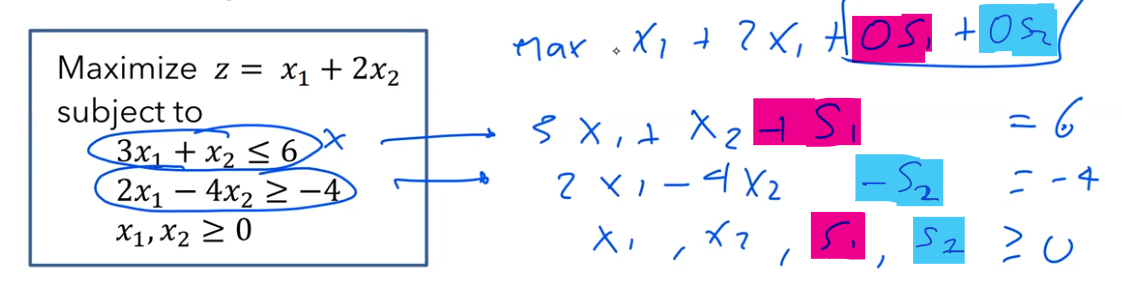 Maximize z = x₁ + 2x₂
subject to
3x₁ + x₂ ≤ 6 x
2x₁ − 4x₂ ≥ −4
x₁, x₂ ≥ 0
Max x₁ + 2x₁ + 0S₁ + 0S₂
3x₁ + x₂ + S₁ = 6
2x₁ − 4x₂ − S₂ = −4
x₁, x₂, S₁, S₂ ≥ 0